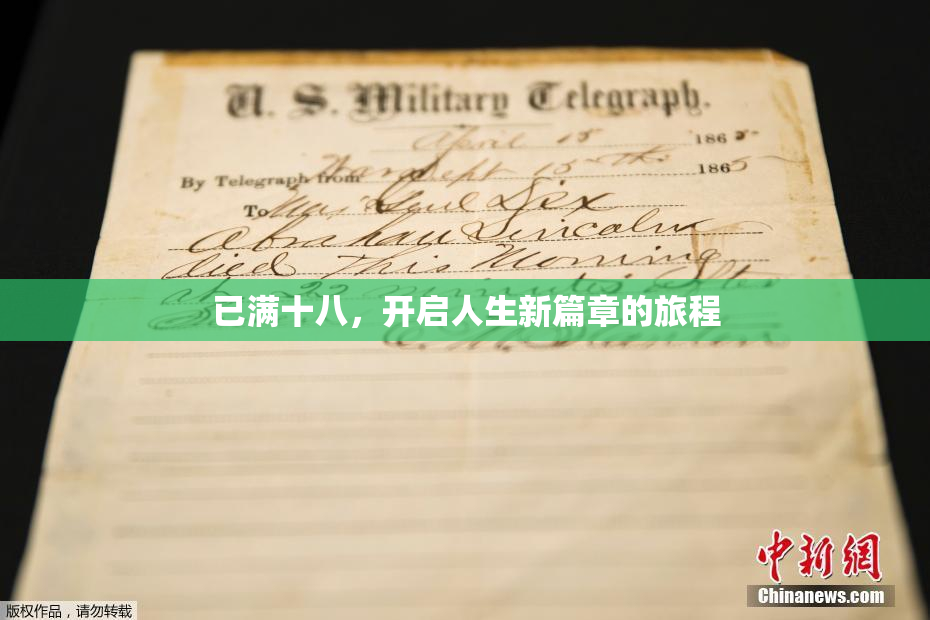 U. S. Military Telegraph.
April 15 1865
By Telegraph from War Dept 15th 1865
To Maj Genl Dix
Abraham Lincoln
died This Morning
at 22 minutes after
已满十八，开启人生新篇章的旅程
中新网
Chinanews.com
版权作品，请勿转载